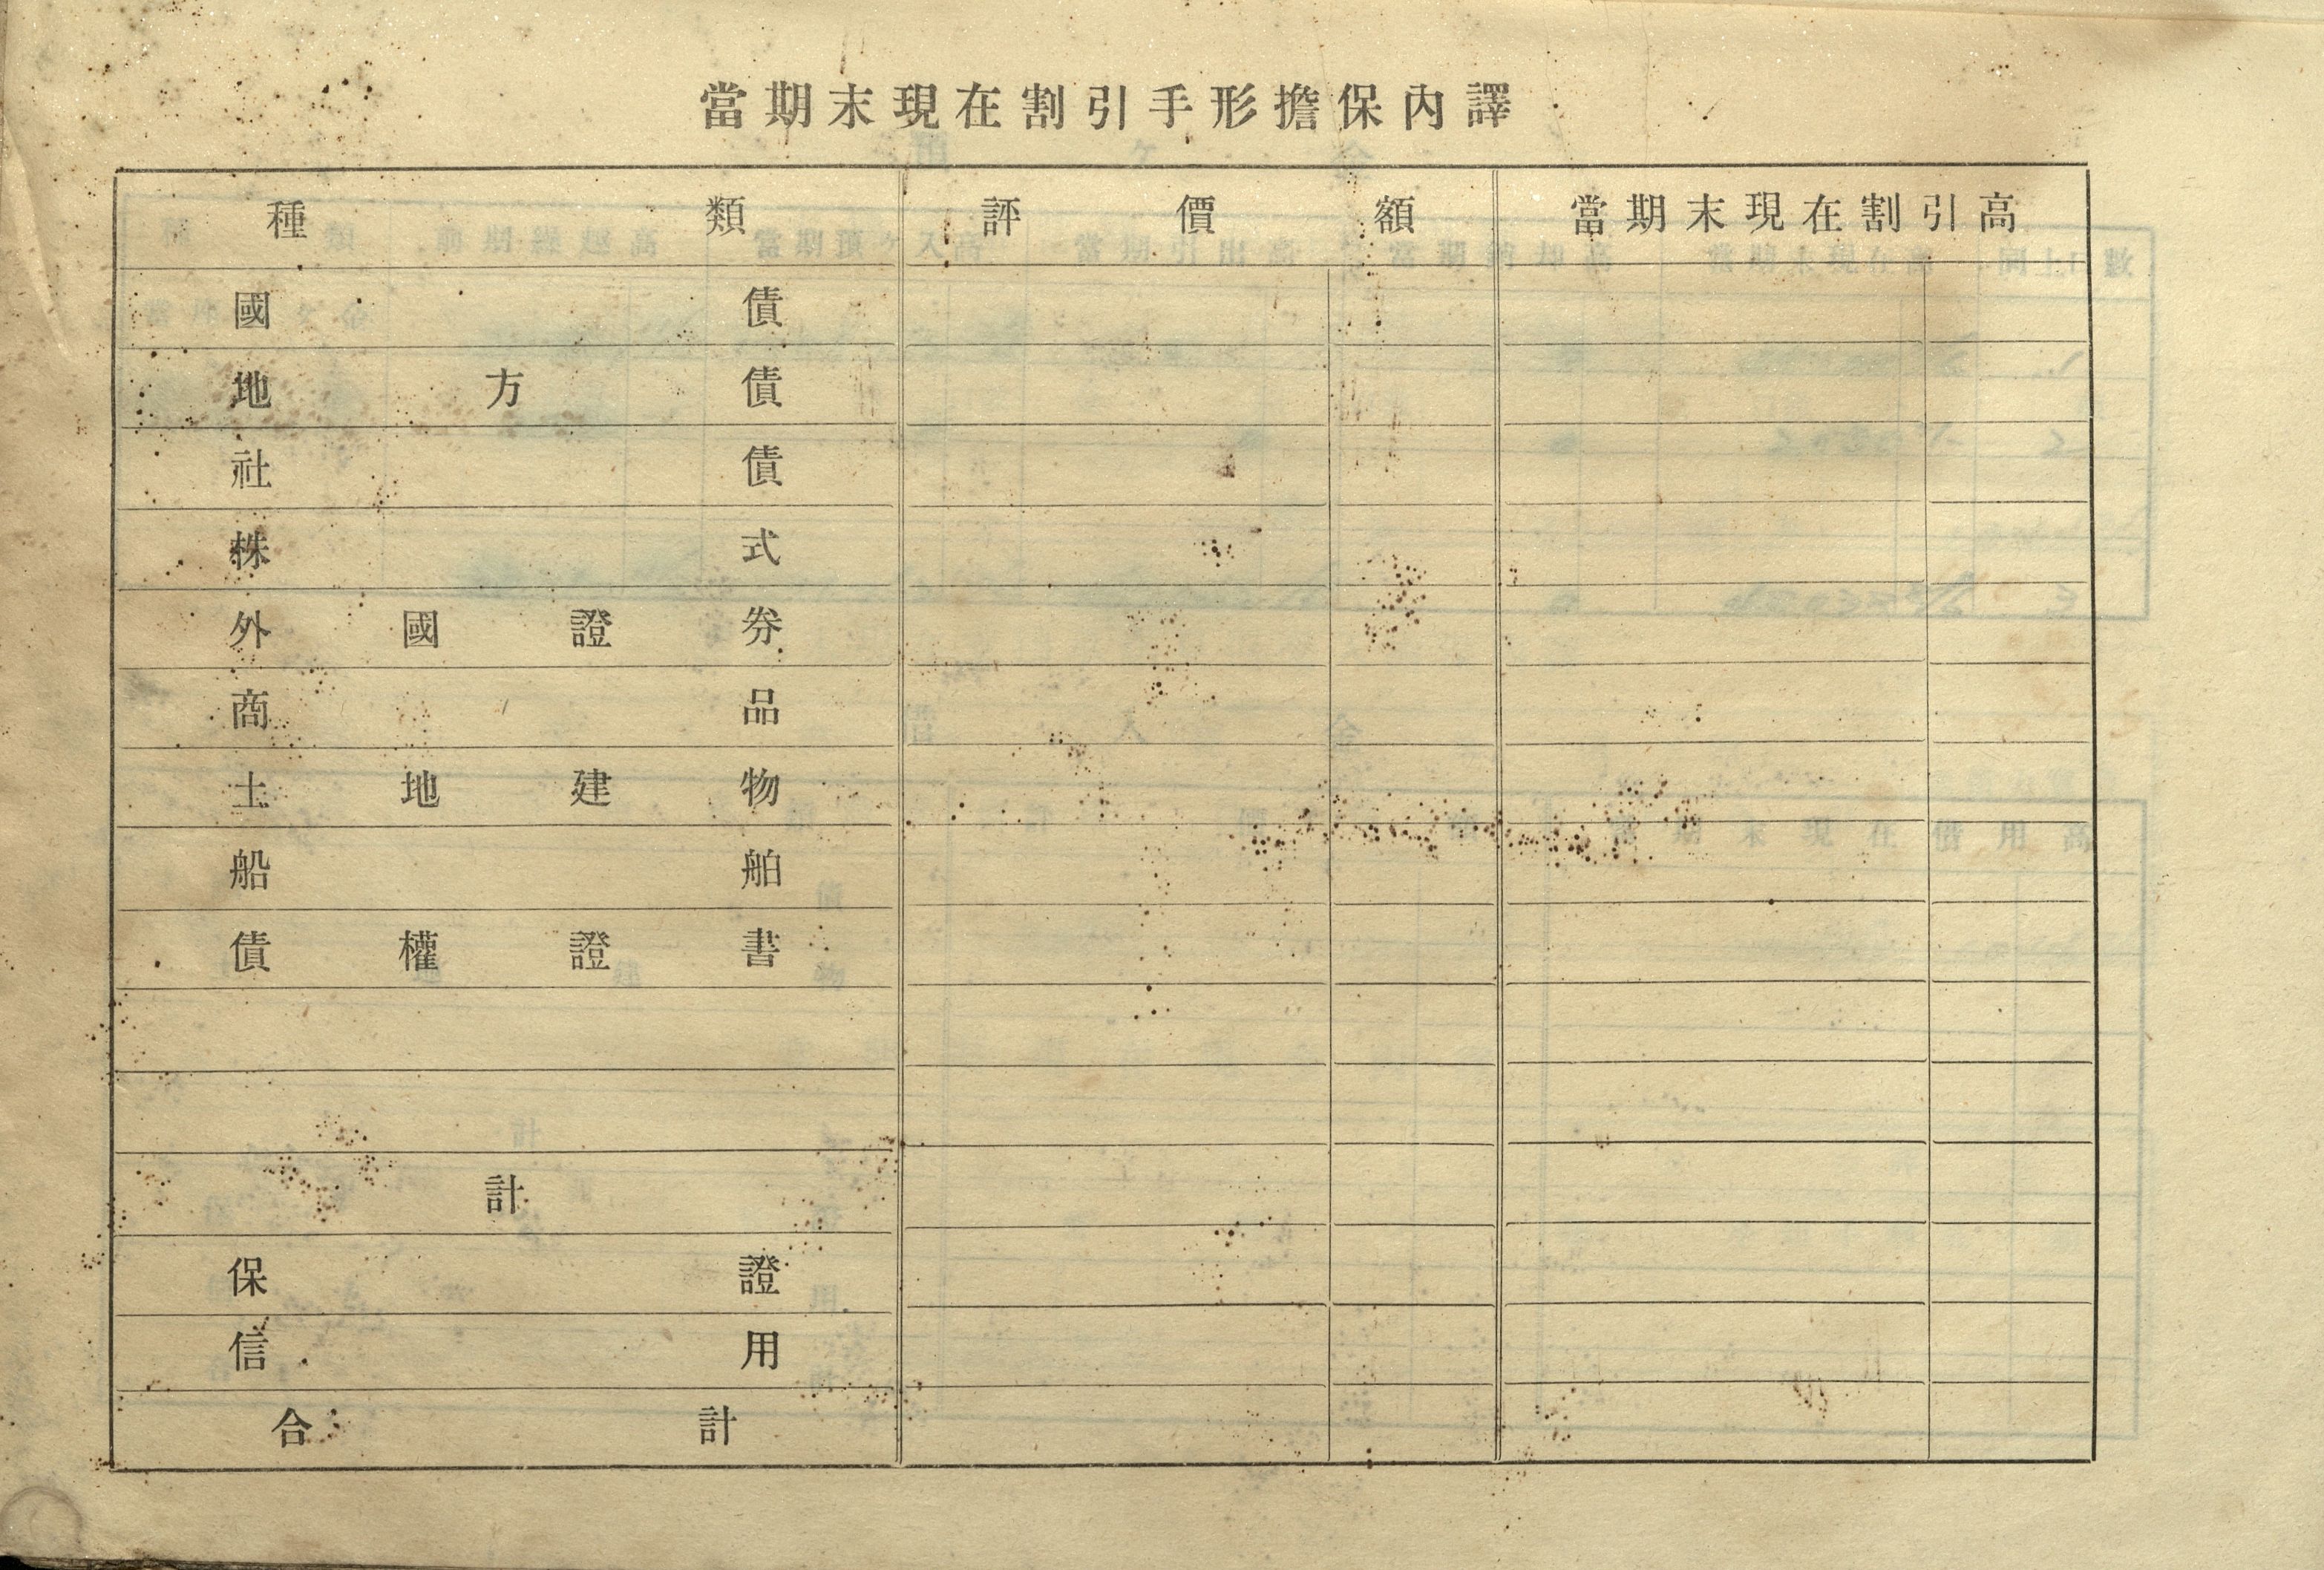 當期末現在割引手形擔保內譯
種類 評價額 當期末現在割引高
國債
地方債
社債
株式
外國證券
商品
土地建物
船舶
債權證書
計
保證
信用
合計